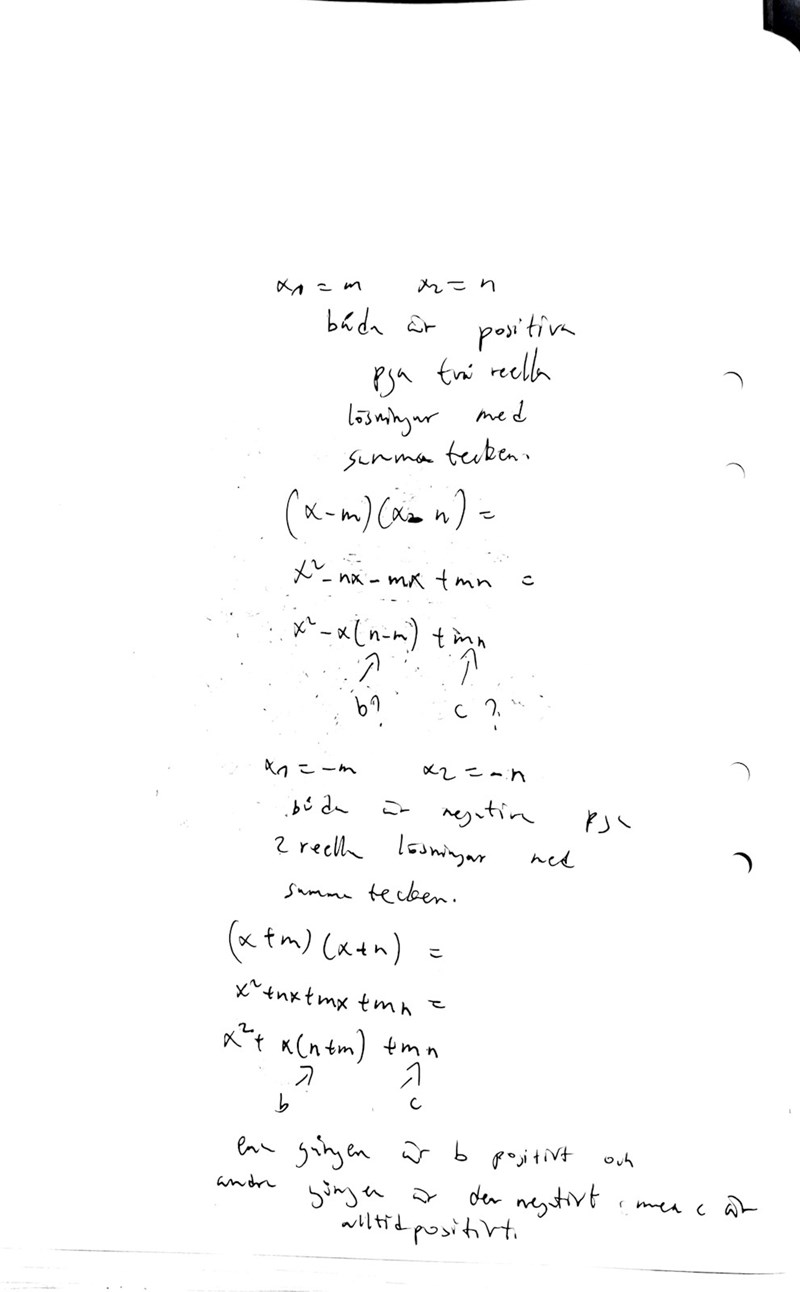 x₁ = m x₂ = n
båda är positiva
pga två reella
lösningar med
samma tecken.
(x-m)(x-n) =
x² - nx - mx + mn =
x² - x(n-m) + mn
b? c?
x₁ = -m x₂ = -n
båda är negativa pga
2 reella lösningar med
samma tecken.
(x+m)(x+n) =
x² + nx + mx + mn =
x² + x(n+m) + mn
b c
ena gången är b positivt och
andra gången är den negativt, men c är
alltid positivt.